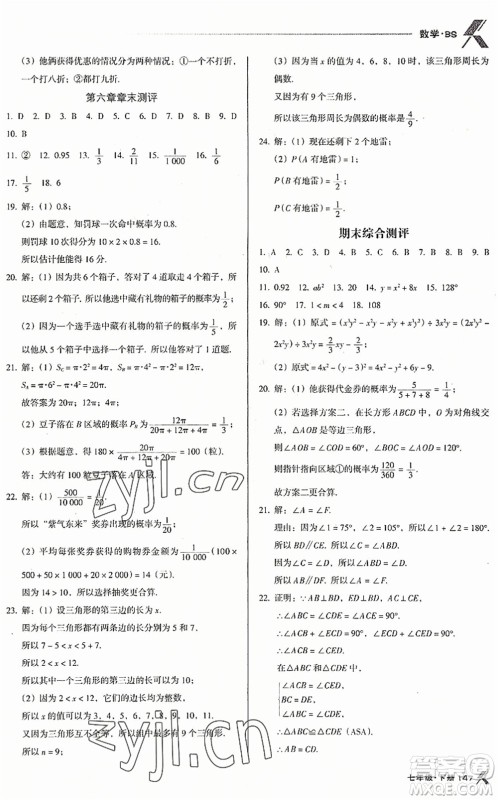 数学·BS
(3) 他俩获得优惠的情况分为两种情况；一个不打折，
一个打八折；②都打九折.
第六章章末测评
1. D 2. D 3. B 4. D 5. D 6. A 7. C 8. D 9. D
10. B
11. ② 12. 0.95 13. 1/3 14. 2/11 15. 1/1 000 16. 1/4
17. 1/5 18. 6
19. 解：(1) 0.8.
(2) 由题意，知罚球一次命中的概率为 0.8,
则罚球 10 次得分为 10 × 2 × 0.8 = 16.
所以估计他能得 16 分.
20. 解：(1) 因为共 6 个箱子，答对了 4 道取走 4 个箱子，所
以还剩 2 个箱子. 所以他选中藏有礼物的箱子的概
率为 1/2.
(2) 因为一个选手选中藏有礼物的箱子的概率为 1/5,
所以他从 5 个箱子中选一个箱子. 所以他答对了 1 道题.
21. 解：(1) S_C = π·4 = 4π, S_B = π·4² − 4π = 12π,
S_A = π·6² − π·4² = 20π.
故答案为 4π, 12π, 20π.
(2) 豆子落在 B 区域的概率为 12π/(20π + 12π + 4π) = 1/3.
(3) 根据题意，得 180 × 20π/(4π + 12π + 20π) = 100(粒).
答：大约有 100 粒豆子落在 A 区域.
22. 解：(1) 500/10 000 = 1/20.
所以“紫气东来”奖券出现的概率为 1/20.
(2) 平均每张奖券获得的购物券金额为 1/10 000 (100 ×
500 + 50 × 1 000 + 20 × 2 000) = 14 (元).
所以选择抽奖更合算.
23. 解：(1) 设三角形的第三边的长为 x.
因为每个三角形都有两条边的长分别为 5 和 7,
所以 7 − 5 < x < 5 + 7,
所以 2 < x < 12,
所以其中一个三角形的第三边的长可以为 10.
(2) 因为 2 < x < 12, 它们的边长均为整数，
所以 x 的值可以为 3, 4, 5, 6, 7, 8, 9, 10, 11.
又因为三角形互不全等，
所以 n = 9;
(3) 因为当 x 的值为 4, 6, 8, 10 时，该三角形周长为
偶数.
又因为有 9 个三角形，
所以该三角形周长为偶数的概率是 4/9.
24. 解：(1) 现在还剩下 2 个地雷.
(2) P(A 有地雷) = 1;
P(B 有地雷) = 1/2;
P(C 有地雷) = 1/2.
期末综合测评
1. A 2. C 3. D 4. B 5. D 6. B 7. C 8. D 9. D
10. A
11. 0.92 12. ab² 13. 20 14. y = x² + 8x 15. 128°
16. 90° 17. 1 < m < 4 18. 108
(2) 原式 = 4x² − (y − 3)² = 4x² − y² + 6y − 9.
20. 解：(1) 他获得代金券的概率为 5/(5 + 7 + 8) = 1/4.
(2) 若选择方案二，在长方形 ABCD 中，O 为对角线交
点，△AOB 是等边三角形.
则 ∠AOB = ∠COD = 60°,
所以 ∠AOD = ∠BOC = 120°.
则指针指向区域①的概率为 120/360 = 1/3.
故方案二更合算.
21. 解：∠A = ∠F.
理由：因为 ∠1 = 75°, ∠2 = 105°, 所以 ∠1 + ∠2 = 180°.
所以 BD∥CE. 所以 ∠ABD = ∠C.
因为 ∠C = ∠D, 所以 ∠ABD = ∠D.
所以 AC∥DF. 所以 ∠A = ∠F.
22. 证明：∵AB⊥BD, ED⊥BD, AC⊥CE,
∴∠ABC = ∠CDE = ∠ACE = 90°.
∴∠ACB + ∠ECD = ∠ECD + ∠CED = 90°.
∴∠ACB = ∠CED.
在 △ABC 和 △CDE 中，
∠ACB = ∠CED,
BC = DE,
∠ABC = ∠CDE,
∴△ABC≌△CDE.
zyjl.cn
zyjl.cn
七年级·下册 147